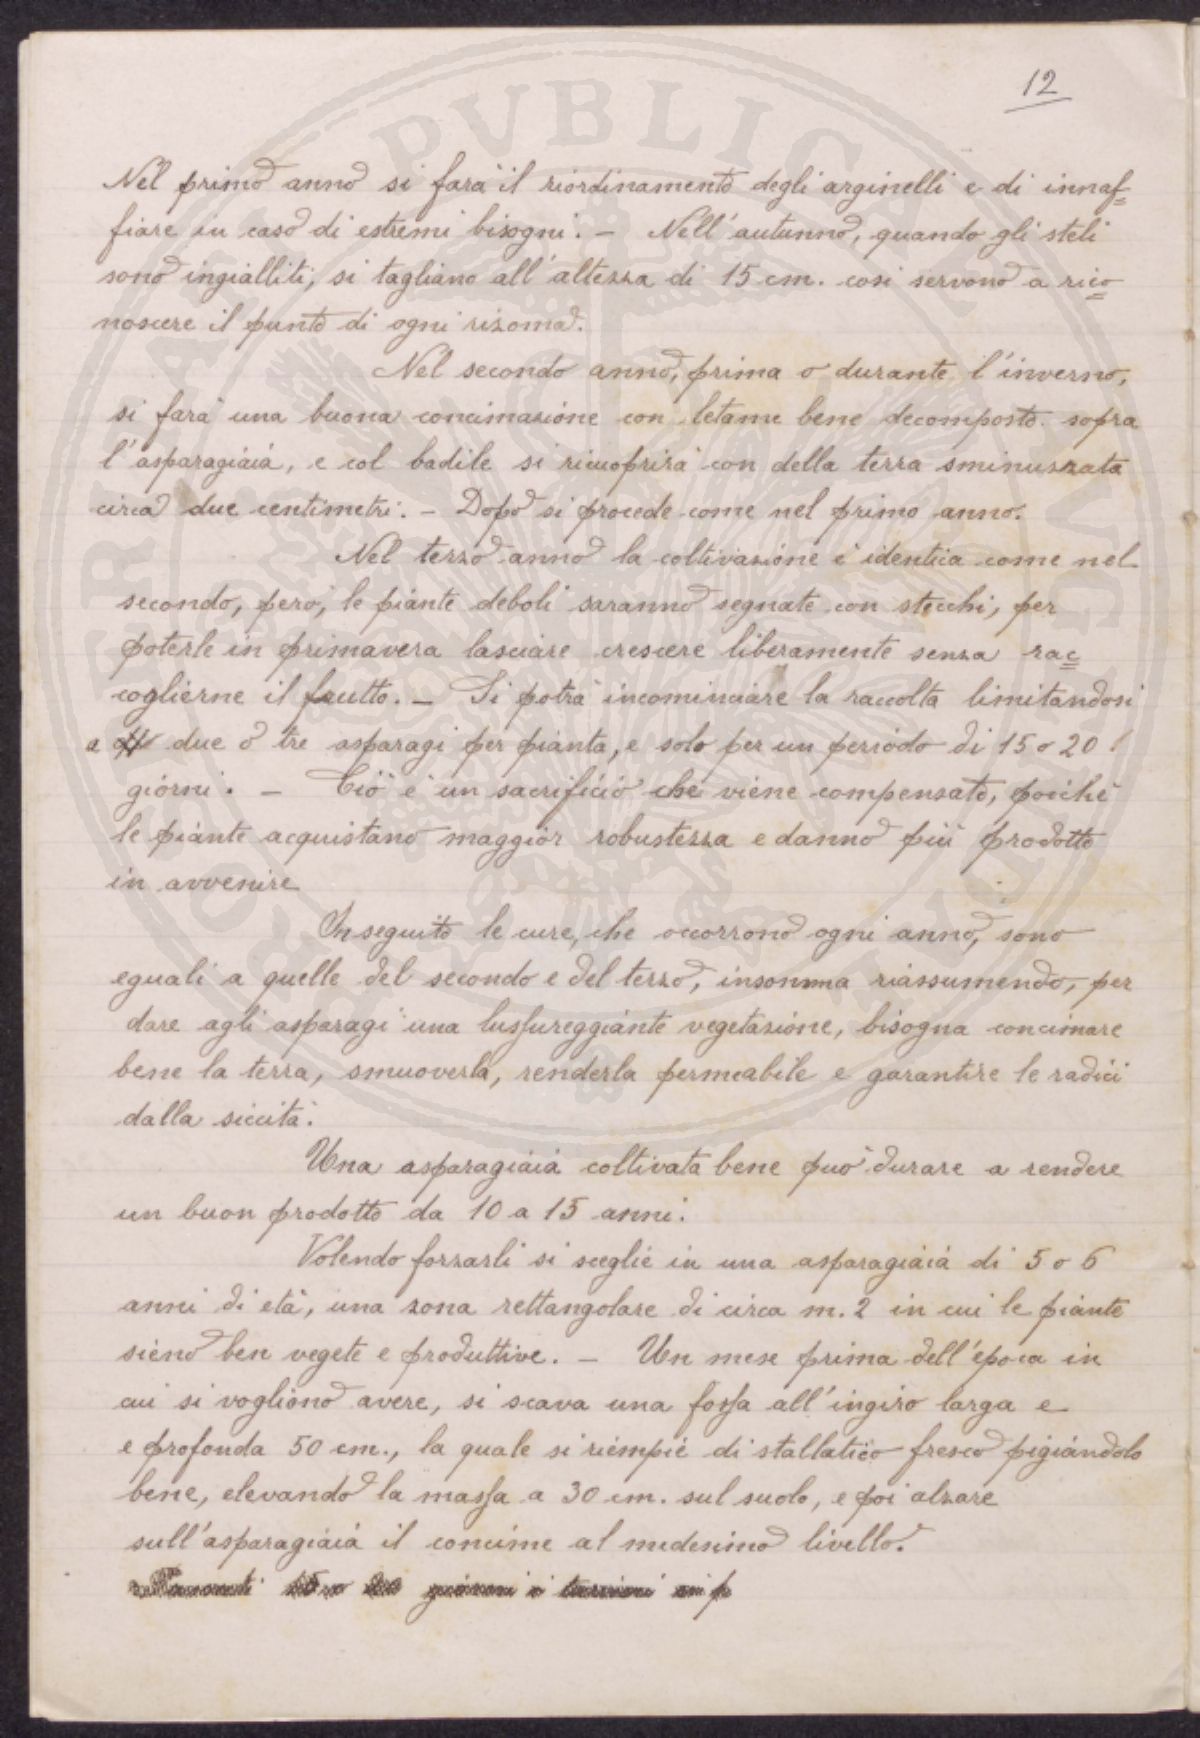 12
Nel primo anno si farà il riordinamento degli arginelli e di innaf=
fiare in caso di estremi bisogni. – Nell'autunno, quando gli steli
sono ingialliti, si tagliano all'altezza di 15 cm. così servono a rico=
noscere il punto di ogni rizoma.
Nel secondo anno, prima o durante l'inverno,
si farà una buona concimazione con letame bene decomposto sopra
l'asparagiaia, e col badile si ricuoprirà con della terra sminuzzata
circa due centimetri. – Dopo si procede come nel primo anno.
Nel terzo anno la coltivazione è identica come nel
secondo, però, le piante deboli saranno segnate con stecchi, per
poterle in primavera lasciare crescere liberamente senza rac=
coglierne il frutto. – Si potrà incominciare la raccolta limitandosi
a due o tre asparagi per pianta, e solo per un periodo di 15 o 20
giorni. – Ciò è un sacrificio che viene compensato, poichè
le piante acquistano maggior robustezza e danno più prodotto
in avvenire
In seguito le cure, che occorrono ogni anno, sono
eguali a quelle del secondo e del terzo, insomma riassumendo, per
dare agli asparagi una lussureggiante vegetazione, bisogna concimare
bene la terra, smuoverla, renderla permeabile e garantire le radici
dalla siccità.
Una asparagiaia coltivata bene può durare a rendere
un buon prodotto da 10 a 15 anni.
Volendo forzarli si sceglie in una asparagiaia di 5 o 6
anni di età, una zona rettangolare di circa m. 2 in cui le piante
sieno ben vegete e produttive. – Un mese prima dell'epoca in
cui si vogliono avere, si scava una fossa all'ingiro larga e
e profonda 50 cm., la quale si riempie di stallatico fresco pigiandolo
bene, elevando la massa a 30 cm. sul suolo, e poi alzare
sull'asparagiaia il concime al medesimo livello.